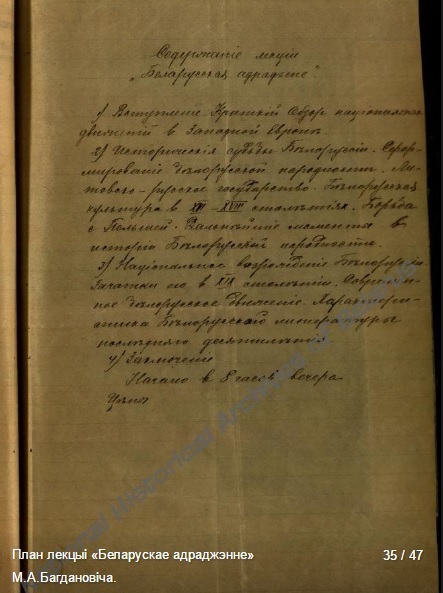 Содержаніе лекціи
„Беларусская адраджене".
1) Вступленіе. Краткій Обзор національных
движеній в Западной Европѣ.
2) Историческія судьбы Бѣлоруссіи. Сфор-
мированіе бѣлорусской народности. Ли-
товско-русское государство. Бѣлорусская
культура в XVI-XVII столѣтіях. Борьба
с Польшей. Дальнѣйшіе моменты в
исторіи Бѣлорусской народности.
3) Національное возрожденіе Бѣлоруссіи
Зачатки его в XIX столѣтіи. Современ-
ное бѣлорусское движеніе. Характери-
стика Бѣлорусской литературы
послѣдняго десятилѣтія
4) Заключеніе
Начало в 8 часов вечера
National Historical Archives of Belarus
План лекцыі «Беларускае адраджэнне»
35 / 47
М.А.Багдановіча.